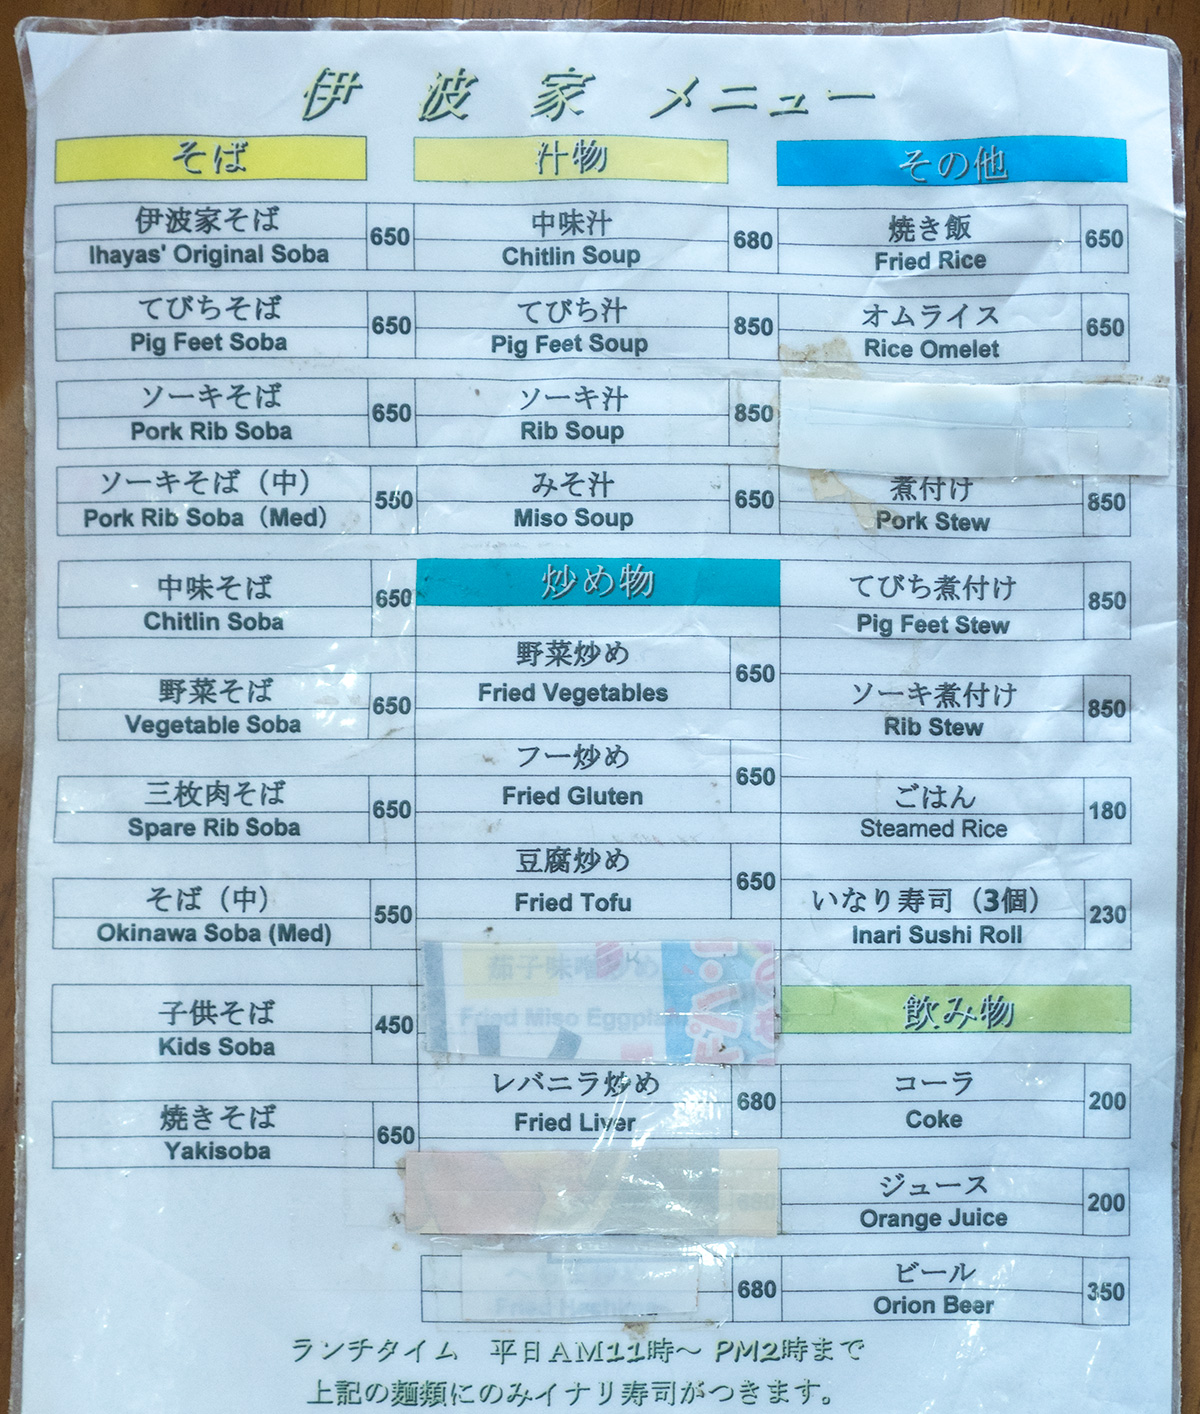 伊波家 メニュー
そば
伊波家そば
Ihayas' Original Soba
650
てびちそば
Pig Feet Soba
650
ソーキそば
Pork Rib Soba
650
ソーキそば（中）
Pork Rib Soba（Med）
550
中味そば
Chitlin Soba
650
野菜そば
Vegetable Soba
650
三枚肉そば
Spare Rib Soba
650
そば（中）
Okinawa Soba (Med)
550
子供そば
Kids Soba
450
焼きそば
Yakisoba
650
汁物
中味汁
Chitlin Soup
680
てびち汁
Pig Feet Soup
850
ソーキ汁
Rib Soup
850
みそ汁
Miso Soup
650
炒め物
野菜炒め
Fried Vegetables
650
フー炒め
Fried Gluten
650
豆腐炒め
Fried Tofu
650
茄子味噌炒め
Fried Miso Eggplant
レバニラ炒め
Fried Liver
680
680
Fried
680
その他
焼き飯
Fried Rice
650
オムライス
Rice Omelet
650
煮付け
Pork Stew
850
てびち煮付け
Pig Feet Stew
850
ソーキ煮付け
Rib Stew
850
ごはん
Steamed Rice
180
いなり寿司（3個）
Inari Sushi Roll
230
飲み物
コーラ
Coke
200
ジュース
Orange Juice
200
ビール
Orion Beer
350
ランチタイム 平日AM11時～PM2時まで
上記の麺類にのみイナリ寿司がつきます。